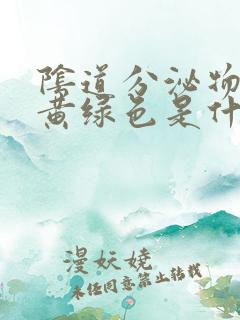 陰道分泌物
黄绿色是什
漫妖娆
未经同意禁止转载